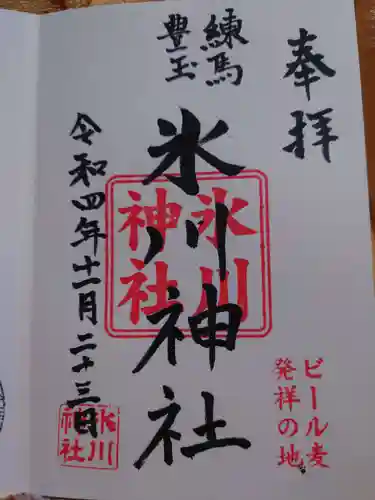 奉拝
練馬
豊玉
氷川神社
氷川
神社
令和四年十一月二十三日
氷川
神社
ビール麦
発祥の地